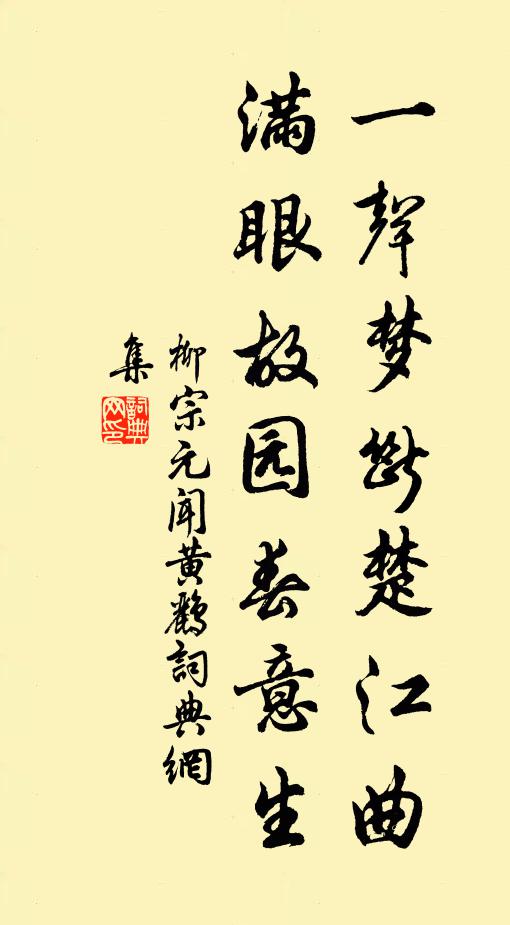 一聲梦斷楚江曲
满眼故园春意生
柳宗元闻黄鹂詞典網
集
詞典
网印